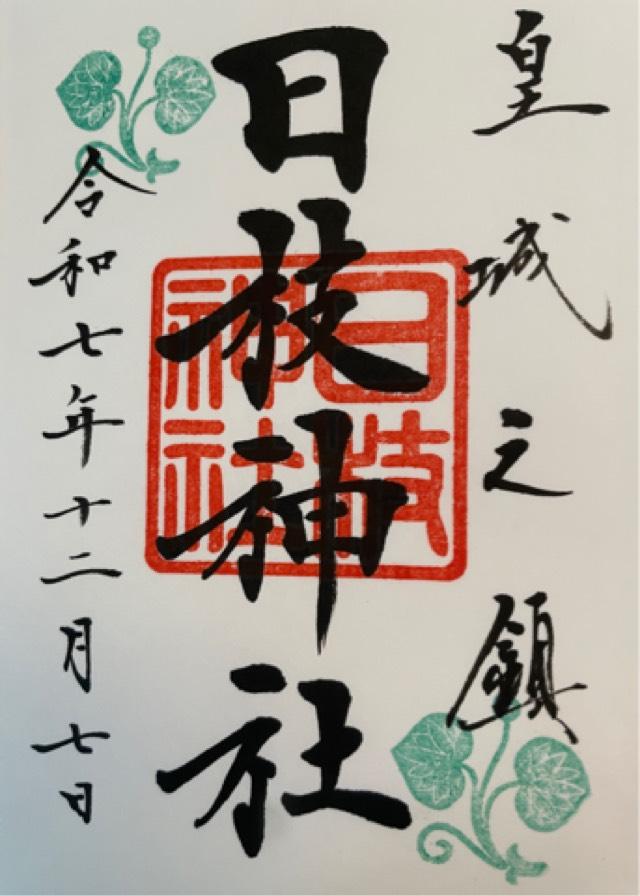 皇城之鎮
日枝神社
日枝神社
令和七年十二月七日